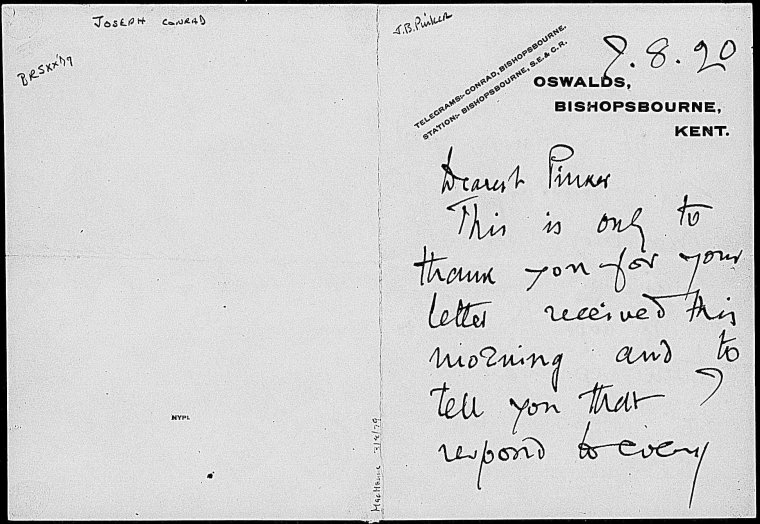 JOSEPH CONRAD
J.B. Pinker
TELEGRAMS:- CONRAD, BISHOPSBOURNE.
STATION:- BISHOPSBOURNE, S.E. & C.R.
8.20
OSWALDS,
BISHOPSBOURNE,
KENT.
Dearest Pinker
This is only to
thank you for your
letter received this
morning and to
tell you that I
respond to every
NYPL